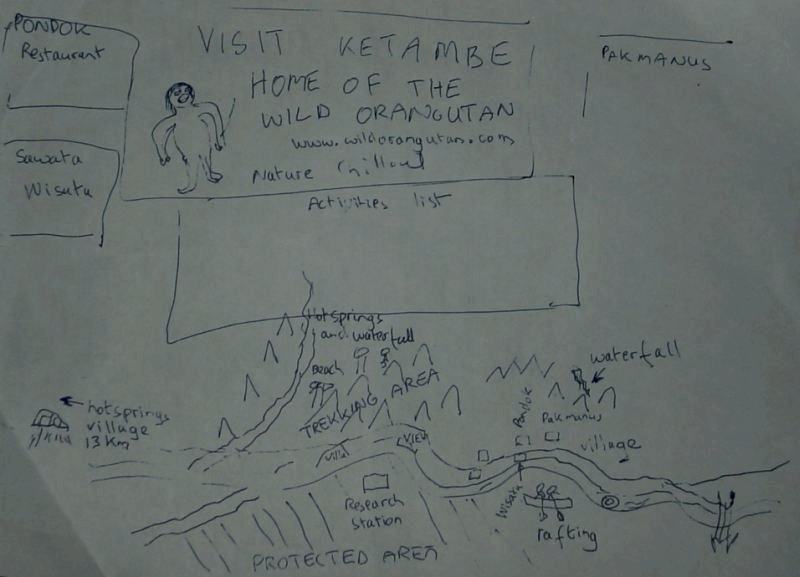 PONDOK
Restaurant
Sawata
Wisata
VISIT KETAMBE
HOME OF THE
WILD ORANGUTAN
www.wildorangutan.com
Nature
PAKMANUS
Activities list
Hotsprings
and waterfall
Beach
TREKKING AREA
waterfall
hotsprings
village
13 Km
VIEW
Pondok
Pakmanus
village
Wisata
rafting
Research
Station
PROTECTED AREA